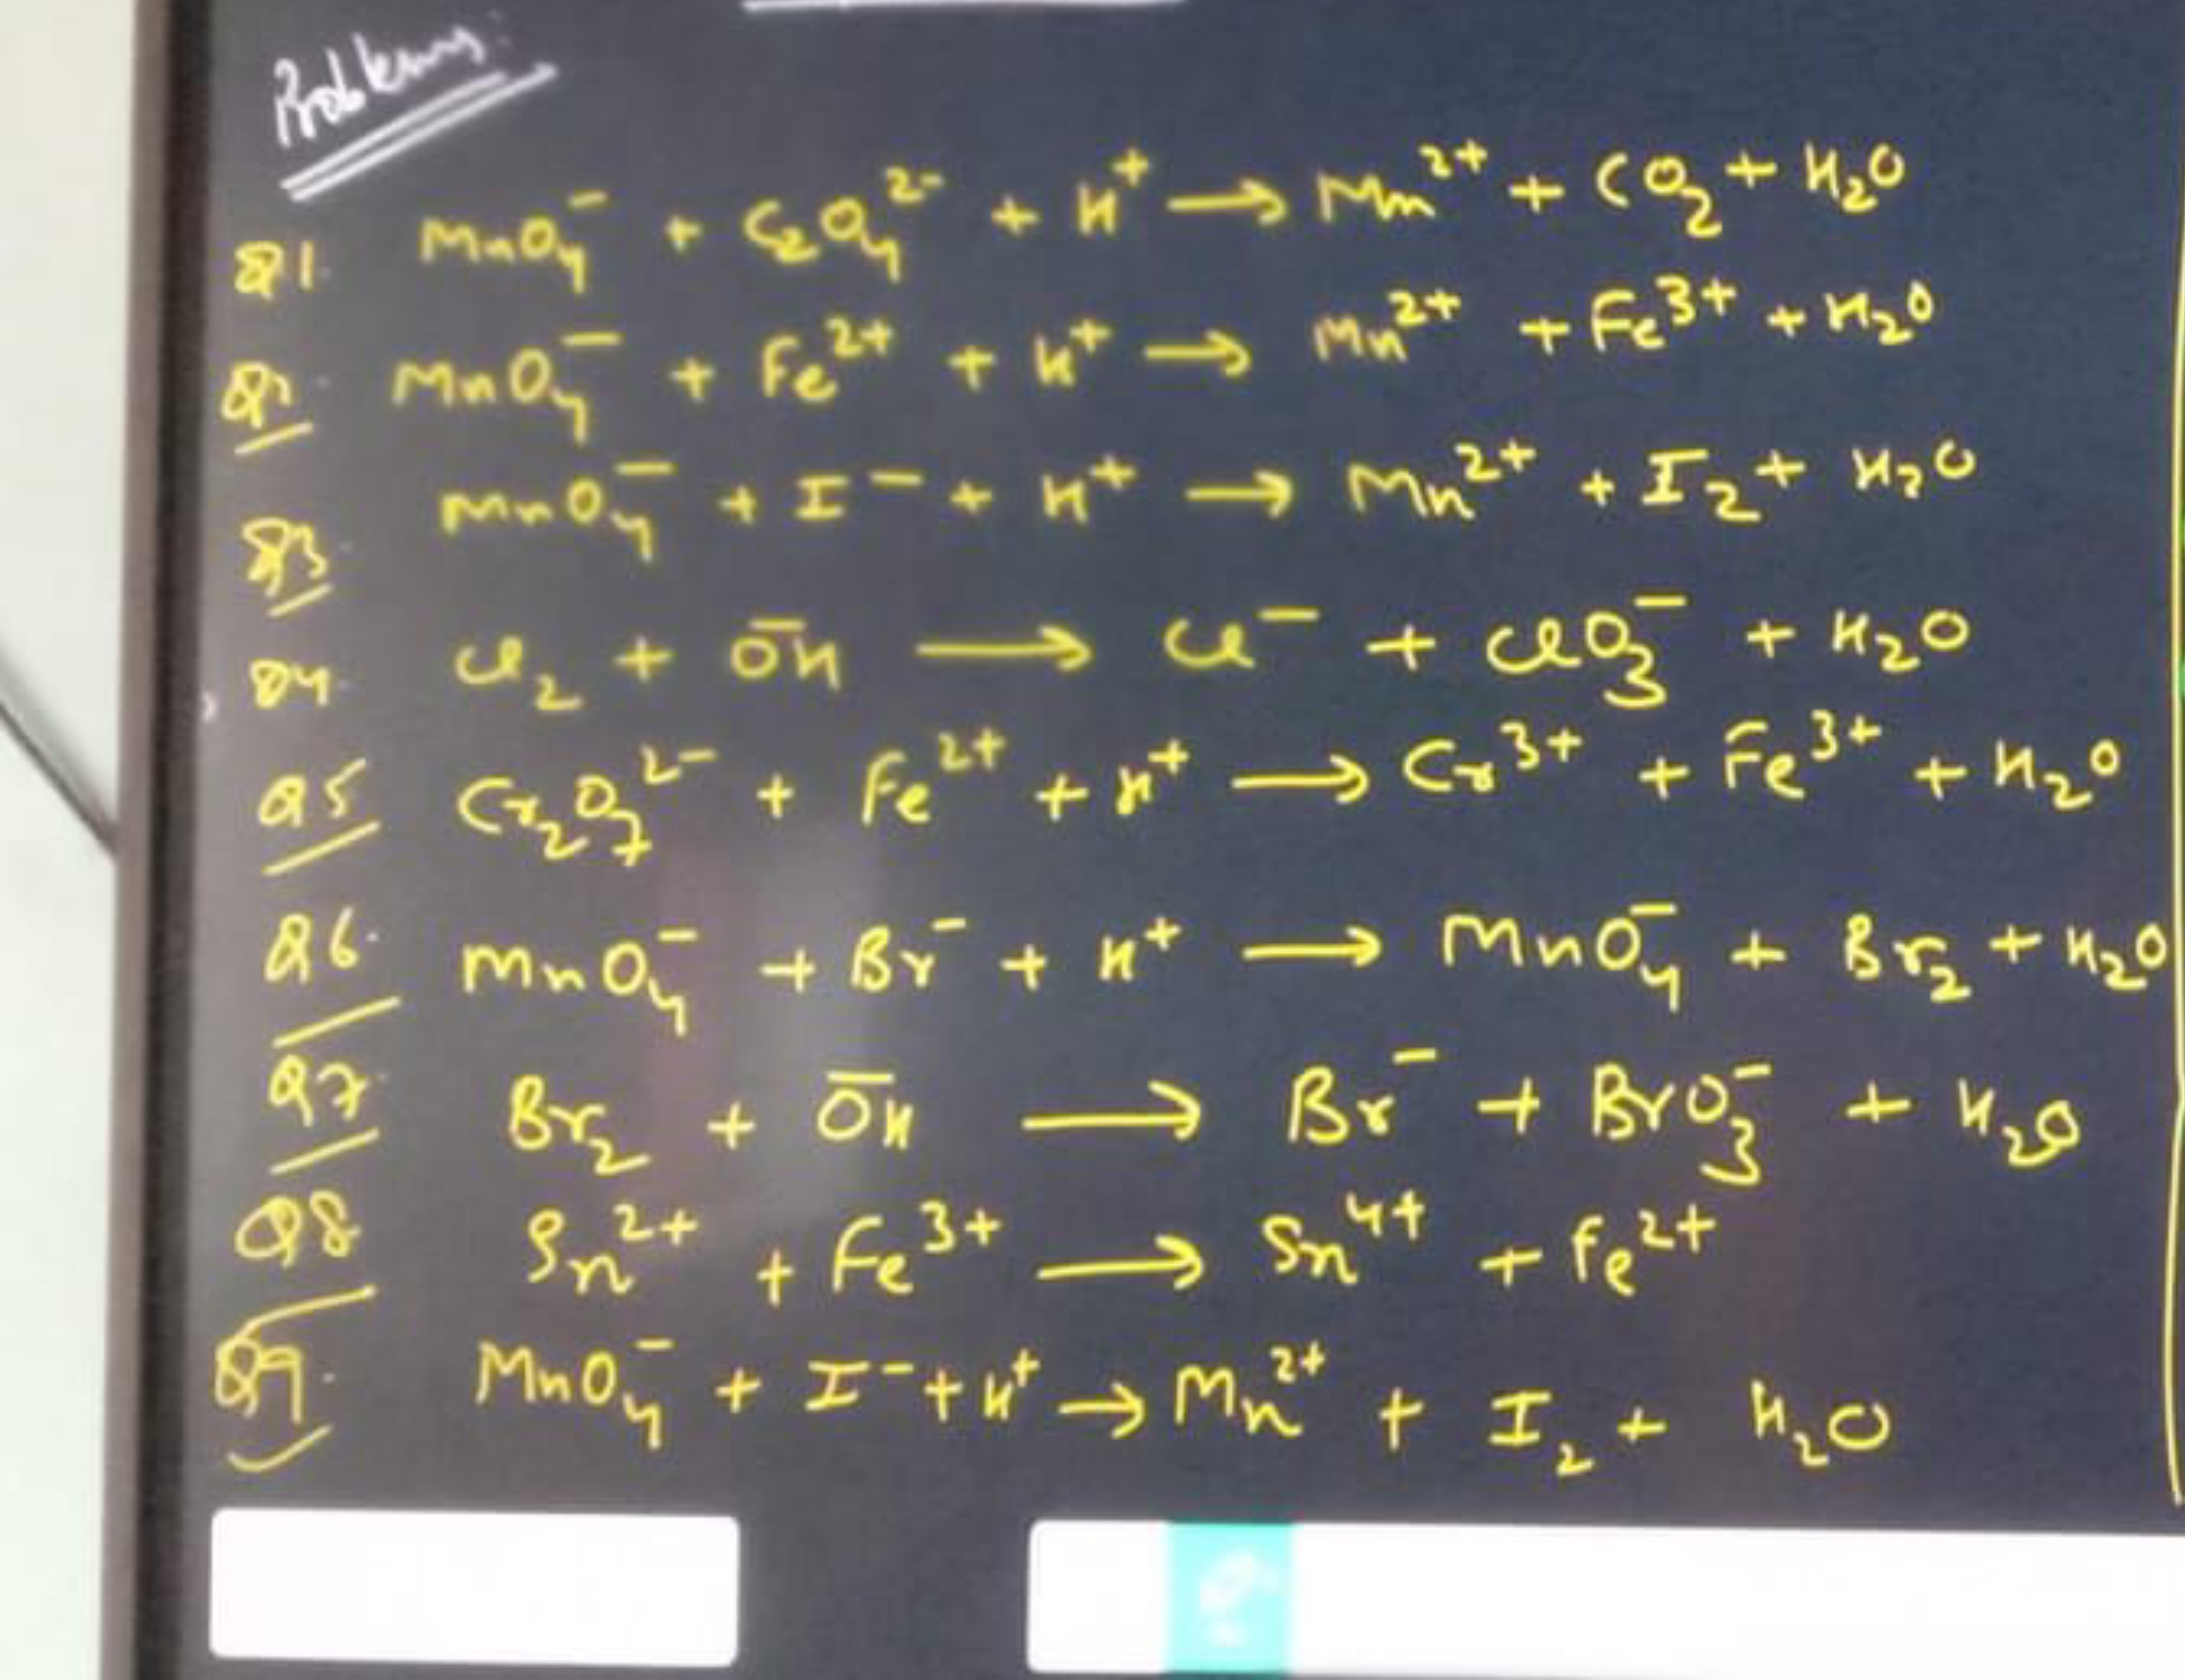 Problems:
Q1. MnO₄⁻ + C₂O₄²⁻ + H⁺ → Mn²⁺ + CO₂ + H₂O
Q2. MnO₄⁻ + Fe²⁺ + H⁺ → Mn²⁺ + Fe³⁺ + H₂O
Q3. MnO₄⁻ + I⁻ + H⁺ → Mn²⁺ + I₂ + H₂O
Q4. Cl₂ + ŌH → Cl⁻ + ClO₃⁻ + H₂O
Q5 Cr₂O₇²⁻ + Fe²⁺ + H⁺ → Cr³⁺ + Fe³⁺ + H₂O
Q6. MnO₄⁻ + Br⁻ + H⁺ → MnO₄⁻ + Br₂ + H₂O
Q7. Br₂ + ŌH → Br⁻ + BrO₃⁻ + H₂O
Q8 Sn²⁺ + Fe³⁺ → Sn⁴⁺ + Fe²⁺
Q9. MnO₄⁻ + I⁻ + H⁺ → Mn²⁺ + I₂ + H₂O